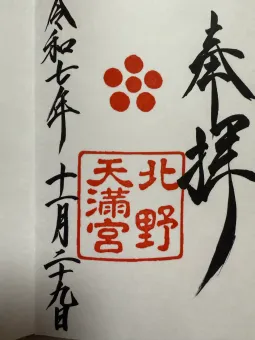 奉拝
北野
天満宮
令和七年 十一月二十九日